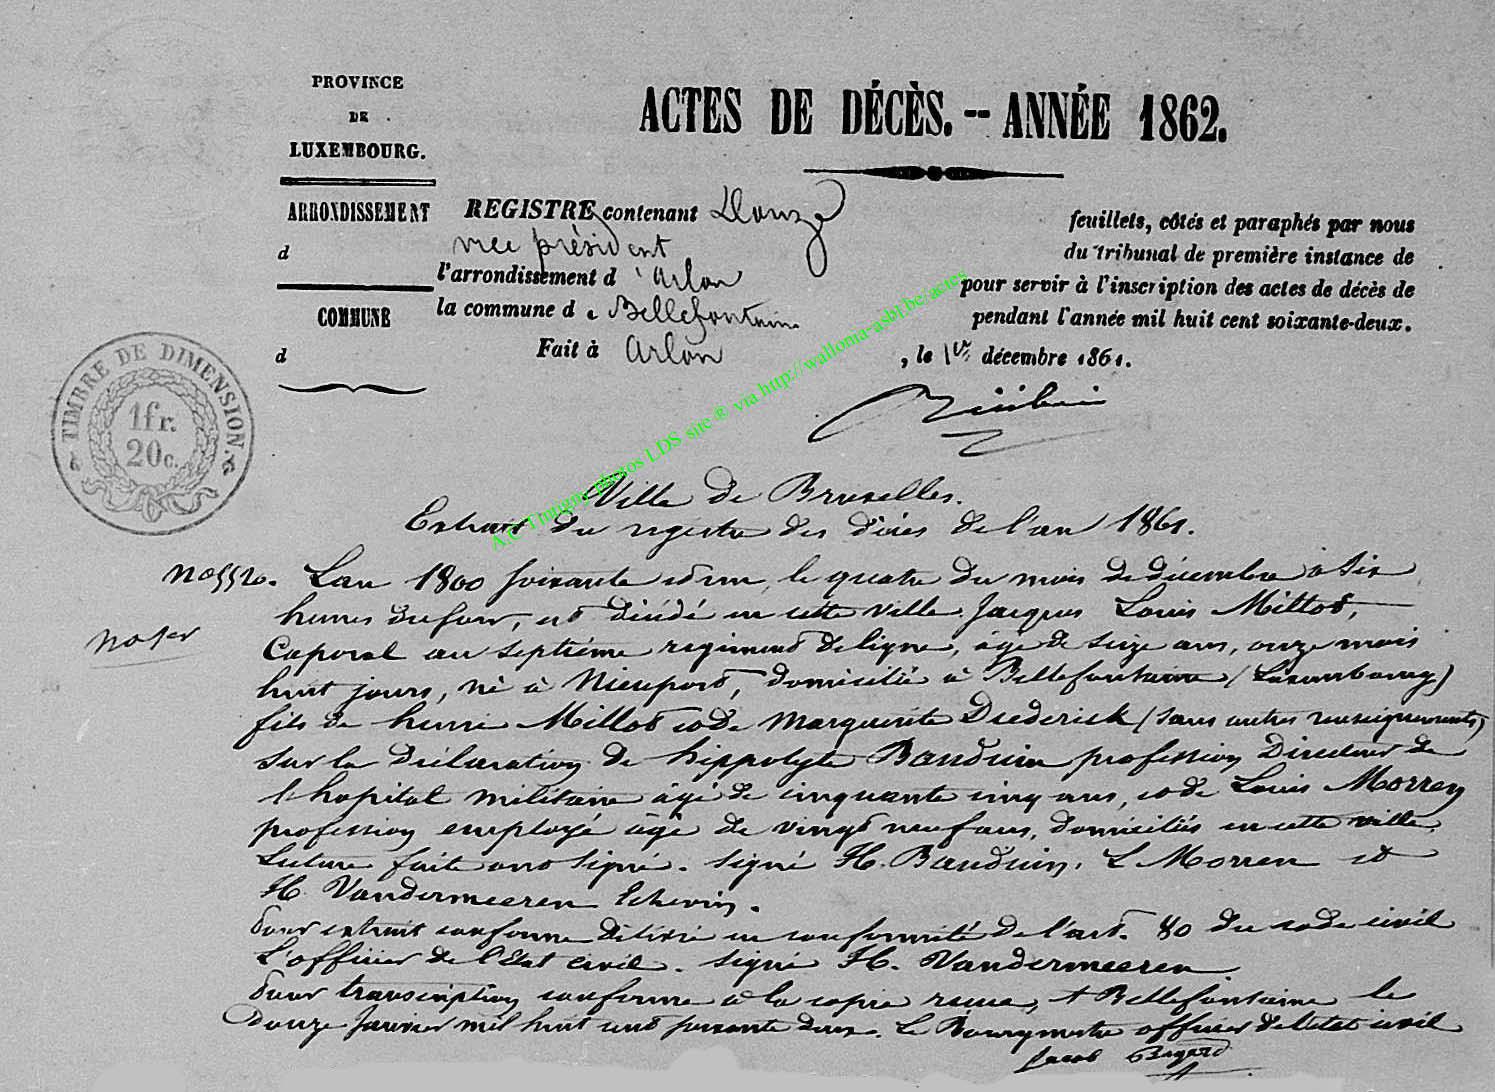 PROVINCE
DE
LUXEMBOURG.
ARRONDISSEMENT
d
COMMUNE
d
ACTES DE DÉCÈS. -- ANNÉE 1862.
REGISTRE contenant Douze feuillets, côtés et paraphés par nous
vice président du tribunal de première instance de
l'arrondissement d'Arlon pour servir à l'inscription des actes de décès de
la commune de Bellefontaine pendant l'année mil huit cent soixante-deux.
Fait à Arlon, le 1er décembre 1861.
TIMBRE DE DIMENSION.
1fr.
20c.
A.C Tintigny photos LDS site ® via http://wallonia-asbl.be/actes
Ville de Bruxelles.
Extrait du registre des décès de l'an 1861.
No 5520. L'an 1800 soixante et un, le quatre du mois de décembre à six
heures du soir, est décédé en cette ville Jacques Louis Millot,
No 1er
Caporal au septième regiment de ligne, âgé de seize ans, onze mois
huit jours, né à Nieuport, domicilié à Bellefontaine (Luxembourg)
fils de henri Millot et de Marguerite Diederick (sans autres renseignements)
Sur la déclaration de hippolyte Bauduin profession Directeur de
l'hopital militaire âgé de cinquante cinq ans, et de Louis Morren
profession employé âgé de vingt neuf ans, domiciliés en cette ville.
Lecture faite ont signé. Signé H. Bauduin, L Morren et
H. Vandermeeren Echevin.
Pour extrait conforme délivré en conformité de l'art. 80 du code civil
L'officier de l'Etat civil. Signé H. Vandermeeren
Pour transcription conforme à la copie reçue, A Bellefontaine le
douze Janvier mil huit cent soixante deux. Le Bourgmestre officier de l'état civil
Jacob